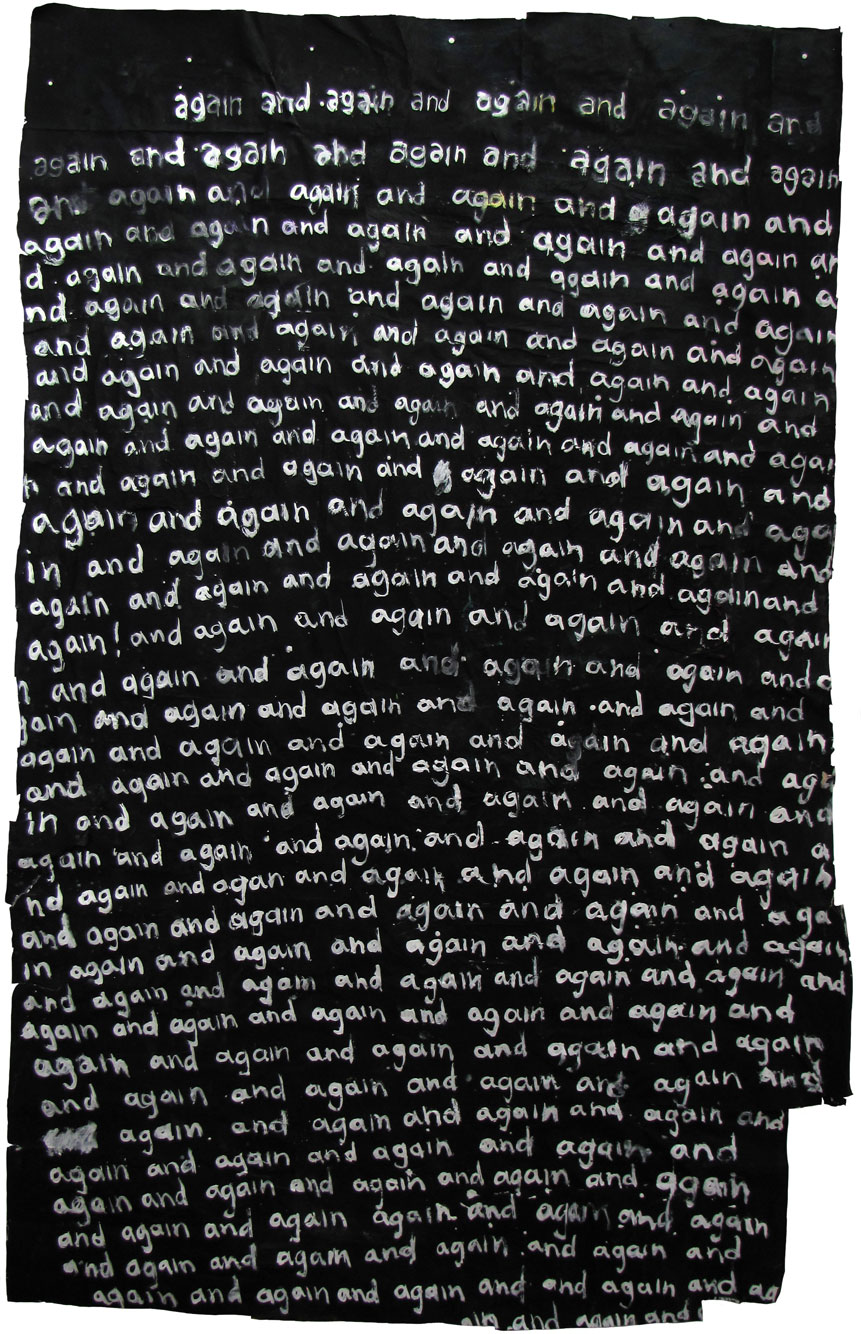 again and again and again and again and
again and again and again and again and again
and again and again and again and again and
again and again and again and again and again an
d again and again and again and again and again a
nd again and again and again and again and again
and again and again and again and again and again
and again and again and again and again and again
and again and again and again and again and again and
again and again and again and again and again and again
n and again and again and again and again and
again and again and again and again and aga
in and again and again and again and again and
again and again and again and again and again and
again! and again and again and again and again
n and again and again and again and again and a
gain and again and again and again and again and
again and again and again and again and again
and again and again and again and again and aga
in and again and again and again and again and
again and again and again and again and again a
nd again and again and again and again and again
and again and again and again and again and aga
in again and again and again and again and again
and again and again and again and again and again and
again and again and again and again and again and
again and again and again and again and again
and again and again and again and again and
again and again and again and again and
again and again and again and again and
again and again and again and again and again
and again and again again and again and again
and again and again and again and again and
again and again and again and and again and ag
ain and again and